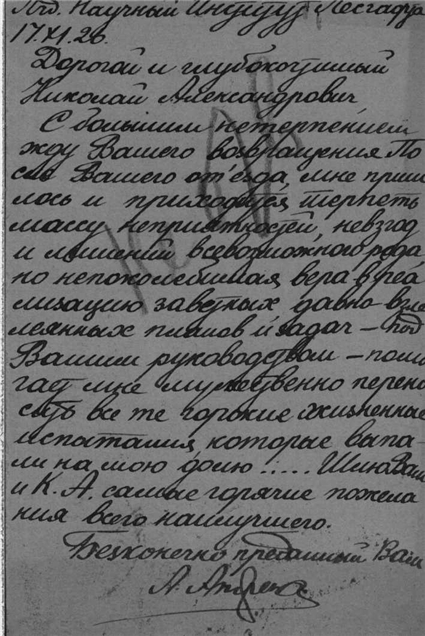 Лгд. Научный Институт Лесгафта
17 XI. 26.
Дорогой и глубокочтимый
Николай Александрович
С большим нетерпением
жду Вашего возвращения По
сле Вашего от'езда мне приш
лось и приходится терпеть
массу неприятностей, невзгод
и лишений всевозможного рода
но непоколебимая вера в реа
лизацию заветных давно взле
леянных планов и задач — под
Вашим руководством — помо
гает мне мужественно перено
сить все те горькие жизненные
испытания, которые выпа
ли на мою долю!.... Шлю Вам
и К. А. самые горячие пожела
ния всего наилучшего.
Бесконечно преданный Вам
А.